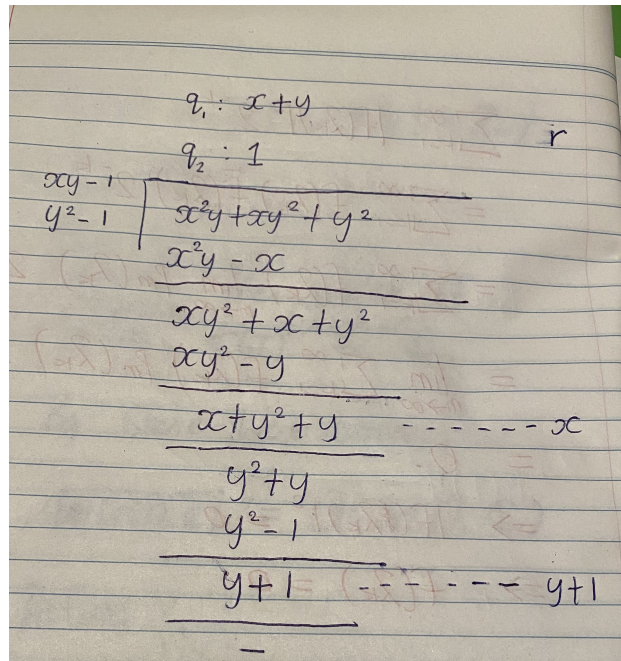 q₁ : x+y
r
q₂ : 1
xy-1
y²-1
x²y+xy²+y²
x²y - x
xy² + x + y²
xy² - y
x+y²+y ------ x
y²+y
y²-1
y+1 ------- y+1
–